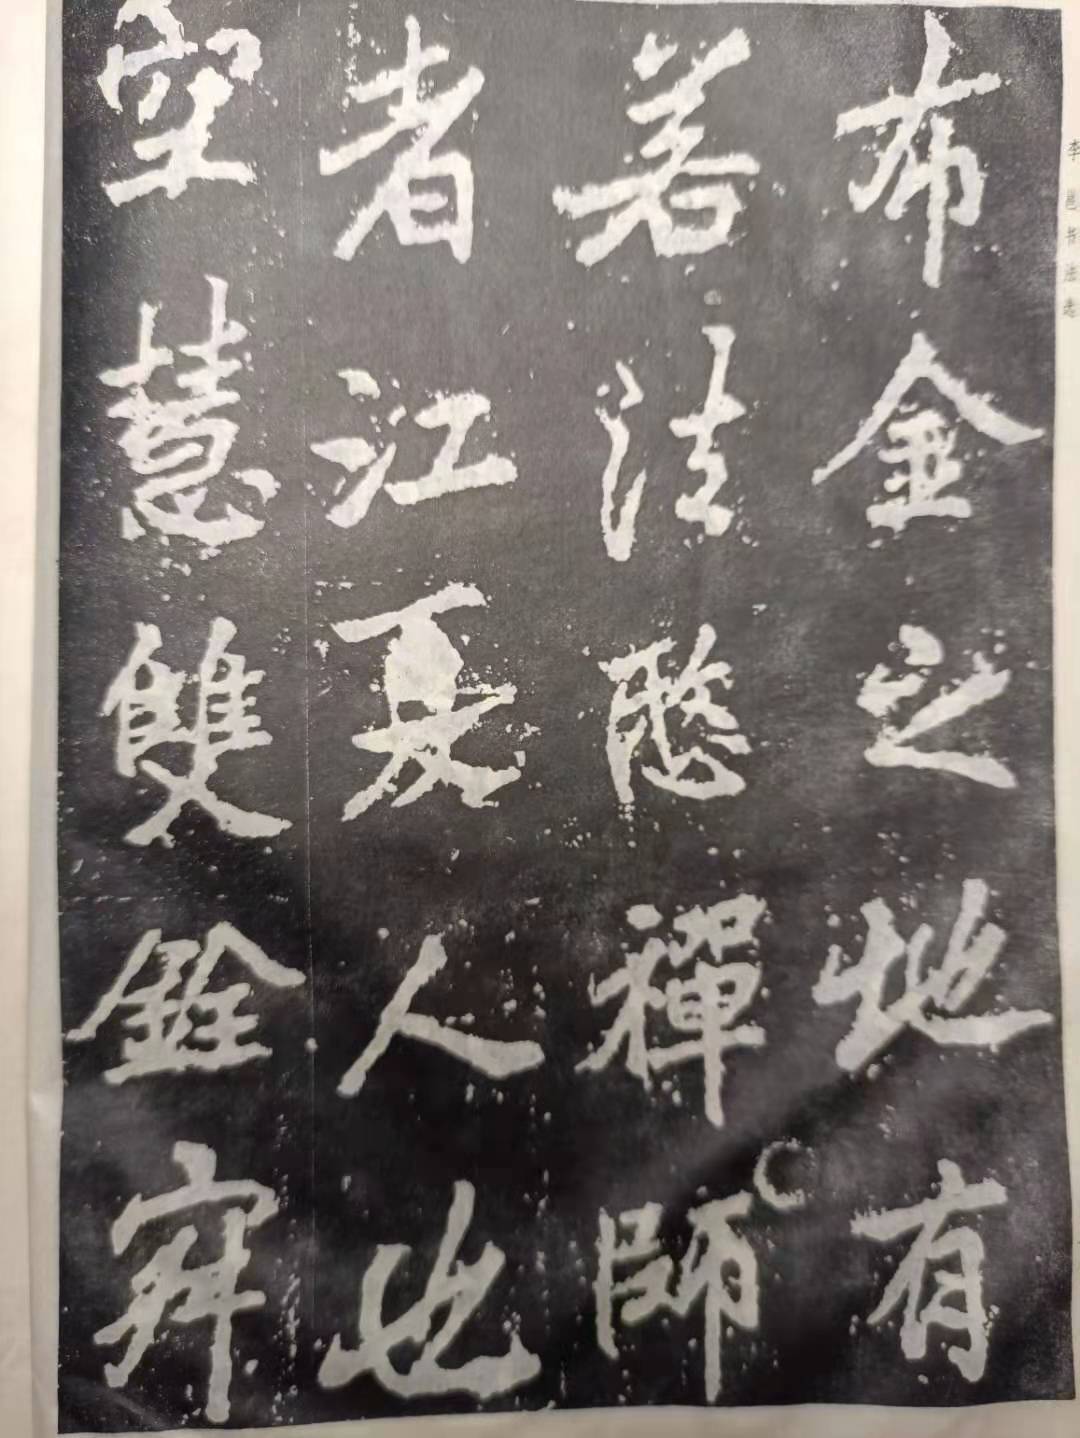 李邕书法
布金之地有
若法愍禪師
者江夏人也
空慧雙銓寂